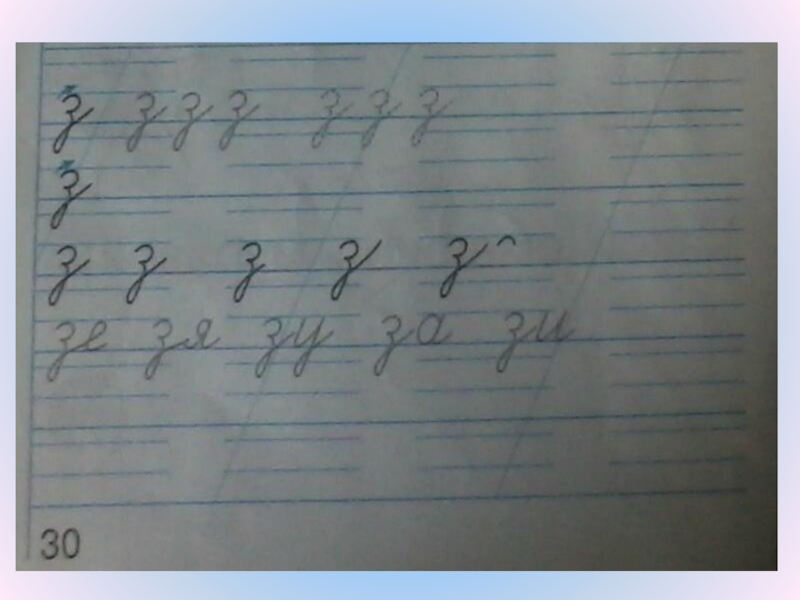 з з з з з з з
з
з з з з з
зе зя зу за зи
30